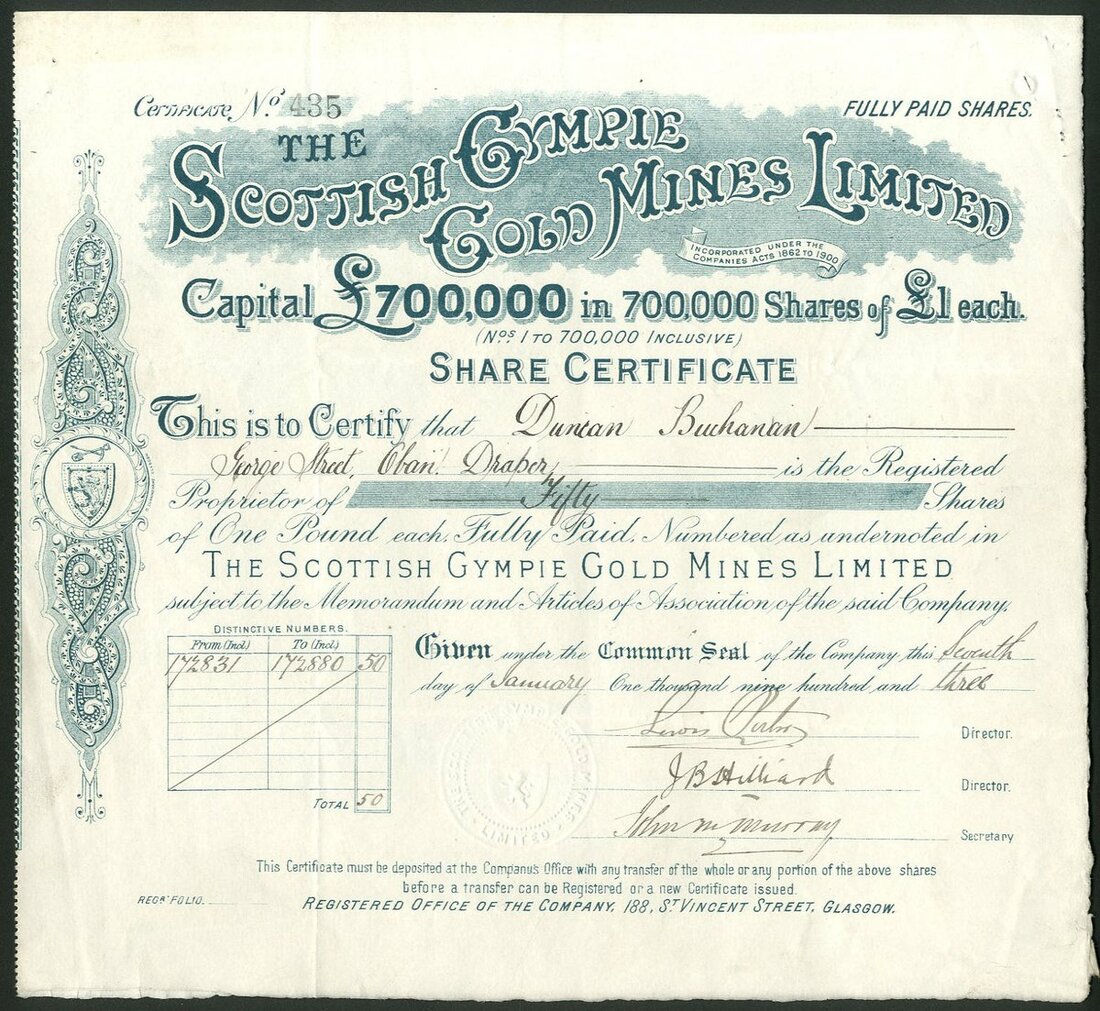 Certificate No. 435
FULLY PAID SHARES.
THE
SCOTTISH GYMPIE
GOLD MINES LIMITED
INCORPORATED UNDER THE
COMPANIES ACTS 1862 TO 1900
Capital £700,000 in 700,000 Shares of £1 each.
(Nos 1 TO 700,000 INCLUSIVE)
SHARE CERTIFICATE
This is to Certify that Duncan Buchanan
George Street, Oban. Draper, is the Registered
Proprietor of Fifty Shares
of One Pound each, Fully Paid, Numbered as undernoted in
THE SCOTTISH GYMPIE GOLD MINES LIMITED
subject to the Memorandum and Articles of Association of the said Company.
DISTINCTIVE NUMBERS.
From (Incl.) To (Incl.)
172831 172880 50
TOTAL 50
Given under the Common Seal of the Company this Seventh
day of January One thousand nine hundred and three
Director.
J B Hilliard Director.
John M Murray Secretary
LIMITED
This Certificate must be deposited at the Company's Office with any transfer of the whole or any portion of the above shares
before a transfer can be Registered or a new Certificate issued.
REGR FOLIO.
REGISTERED OFFICE OF THE COMPANY, 188, ST VINCENT STREET, GLASGOW.